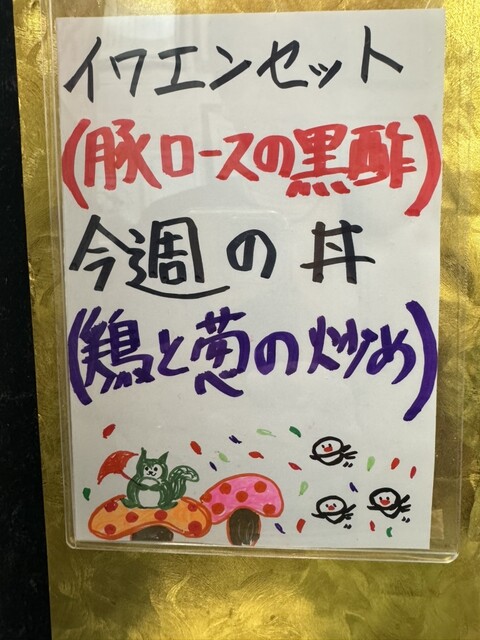 イワエンセット
(豚ロースの黒酢)
今週の丼
(鶏と葱の炒め)